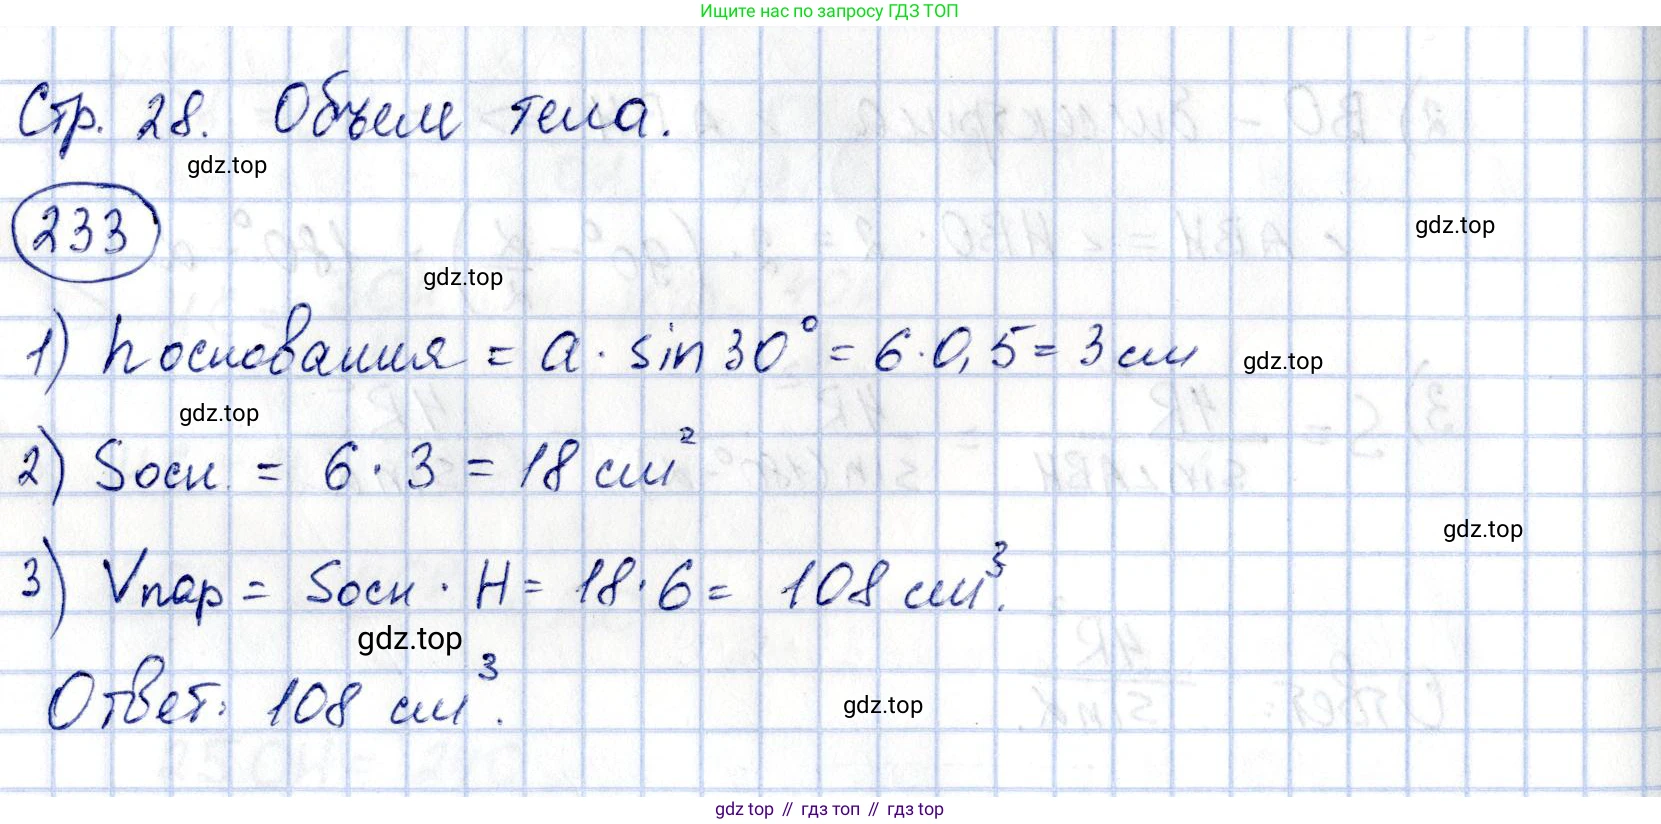 Ищите нас по запросу ГДЗ ТОП
Стр. 28. Объем тела.
gdz.top
233
gdz.top
gdz.top
1) h основания = a · sin 30° = 6 · 0,5 = 3 см
gdz.top
gdz.top
2) Sосн. = 6 · 3 = 18 см²
gdz.top
3) Vпар = Sосн · H = 18 · 6 = 108 см³.
gdz.top
Ответ: 108 см³.
gdz.top
gdz top // гдз топ // гдз top